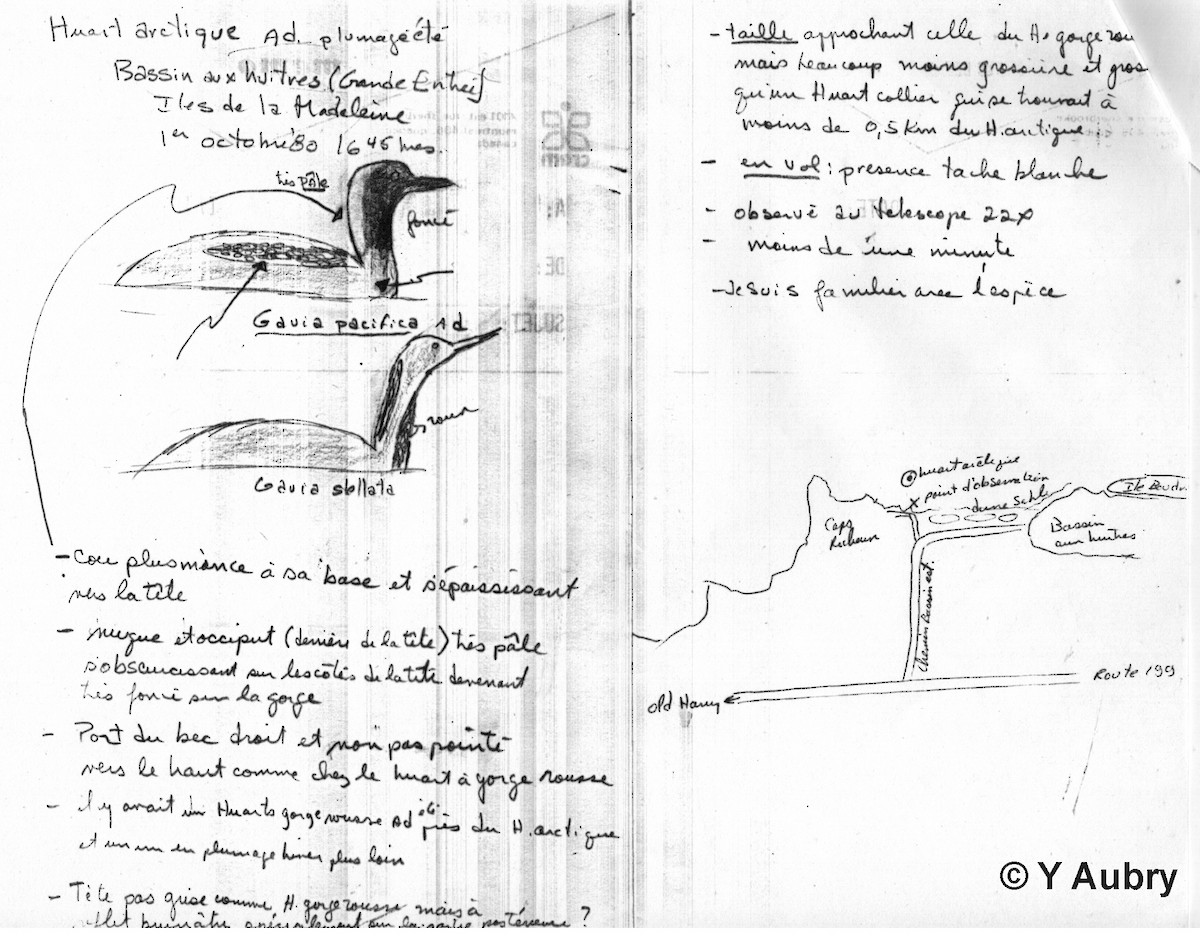 Huart arctique Ad. plumage été
Bassin aux huîtres (Grande Entrée)
Iles de la Madeleine
1er octobre 80 1645 hres.
très pâle
foncé
Gavia pacifica Ad
roux
Gavia stellata
- Cou plus mince à sa base et s'épaississant
vers la tête
- nuque et occiput (derrière de la tête) très pâle
s'obscurcissant sur les côtés de la tête devenant
très foncé sur la gorge
- Port du bec droit et non pas pointé
vers le haut comme chez le huart à gorge rousse
- il y avait un Huart à gorge rousse Ad été près du H. arctique
et un en plumage hiver plus loin
- Tête pas grise comme H. gorge rousse mais à
reflet
- taille approchant celle du H. gorge rou
mais beaucoup moins grossière et gros
qu'un Huart collier qui se trouvait à
moins de 0,5 km du H. arctique.
- en vol: presence tache blanche
- observé au telescope 22x
- moins de une minute
- Je suis familier avec l'espèce
A:
DE:
SUJET:
huart arctique
point d'observation
dune
Caps
Bassin
aux huîtres
Ile Boudr
Chemin Bassin est
Route 199
Old Harry
© Y Aubry